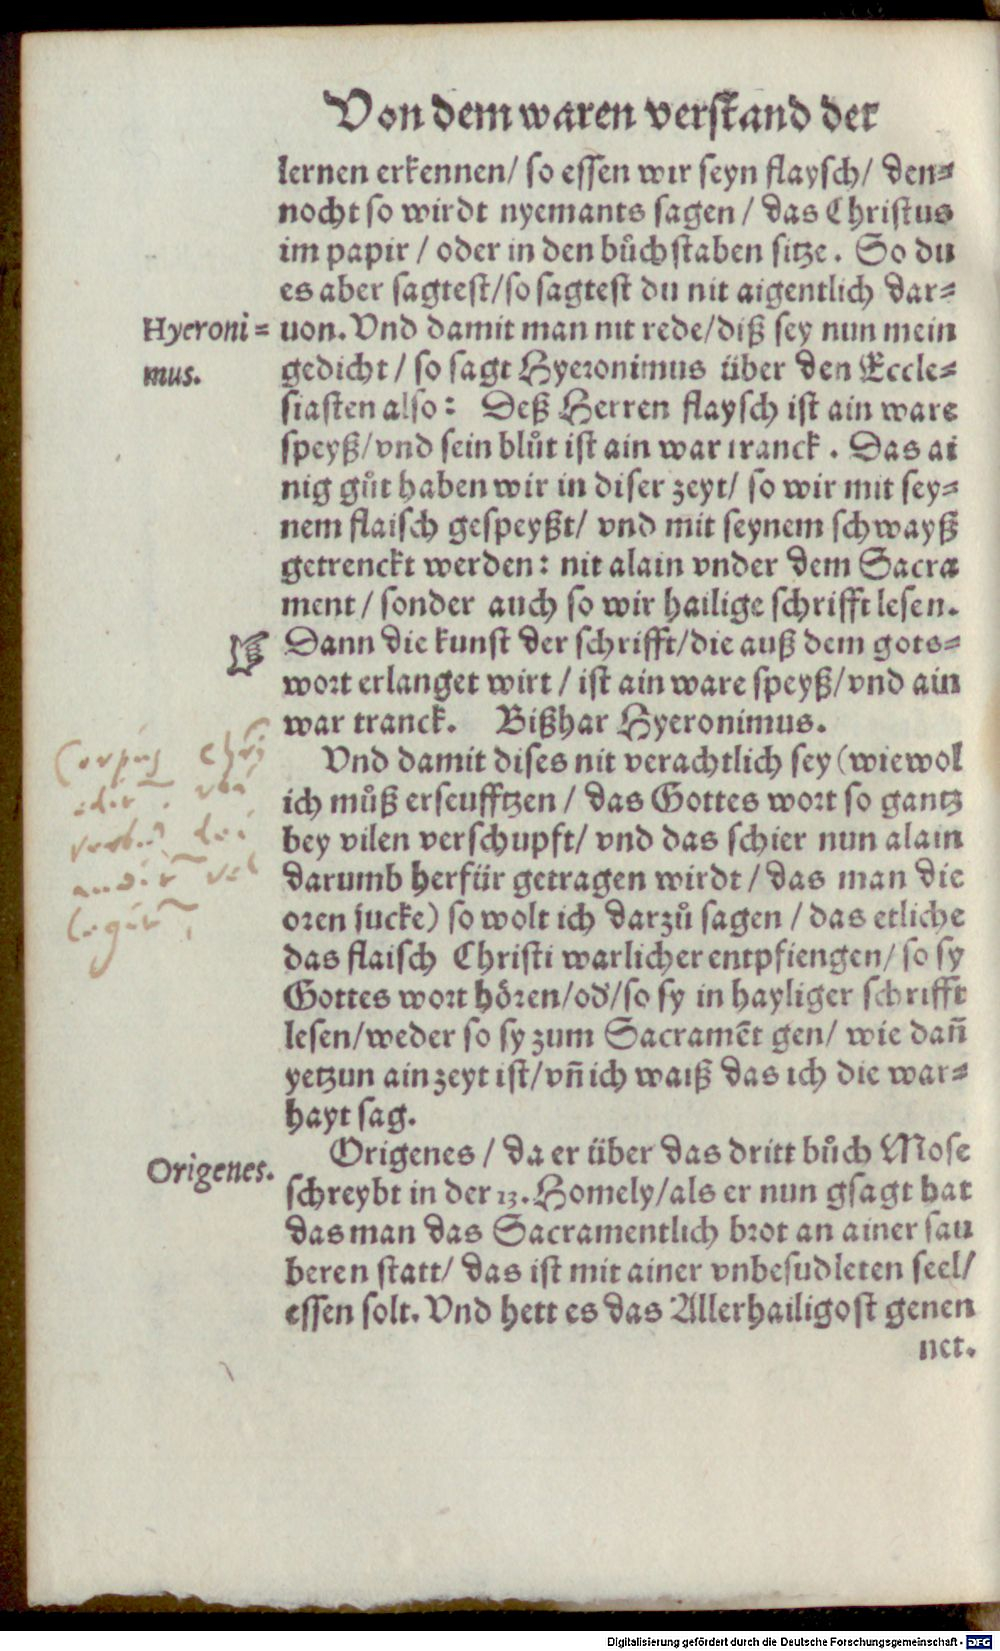 Von dem waren verstand der
lernen erkennen/ so essen wir seyn flaysch/ den⸗
nocht so wirdt nyemants sagen / das Christus
im papir / oder in den bůchstaben sitze. So du
es aber sagtest/so sagtest du nit aigentlich dar⸗
Hyeroni⸗
mus.
uon. Vnd damit man nit rede/diß sey nun mein
gedicht / so sagt Hyeronimus über den Eccle⸗
siasten also: Deß Herren flaysch ist ain ware
speyß/vnd sein blůt ist ain war tranck. Das ai
nig gůt haben wir in diser zeyt/ so wir mit sey⸗
nem flaisch gespeyßt/ vnd mit seynem schwayß
getrenckt werden: nit alain vnder dem Sacra
ment / sonder auch so wir hailige schrifft lesen.
☞ Dann die kunst der schrifft/die auß dem gots⸗
wort erlanget wirt / ist ain ware speyß/vnd ain
war tranck. Bißhar Hyeronimus.
Corpus Chri
verbū dei
Vnd damit dises nit verachtlich sey (wiewol
ich můß erseufftzen / das Gottes wort so gantz
bey vilen verschupft/ vnd das schier nun alain
darumb herfür getragen wirdt / das man die
oren jucke) so wolt ich darzů sagen / das etliche
das flaisch Christi warlicher entpfiengen/ so sy
Gottes wort hören/od'/so sy in hayliger schrifft
lesen/weder so sy zum Sacramēt gen/ wie dañ
yetzun ain zeyt ist/vñ ich waiß das ich die war⸗
hayt sag.
Origenes.
Origenes / da er über das dritt bůch Mose
schreybt in der 13. Homely/als er nun gsagt hat
das man das Sacramentlich brot an ainer sau
beren statt/ das ist mit ainer vnbesudleten seel/
essen solt. Vnd hett es das Allerhailigost genen
net.
Digitalisierung gefördert durch die Deutsche Forschungsgemeinschaft - DFG